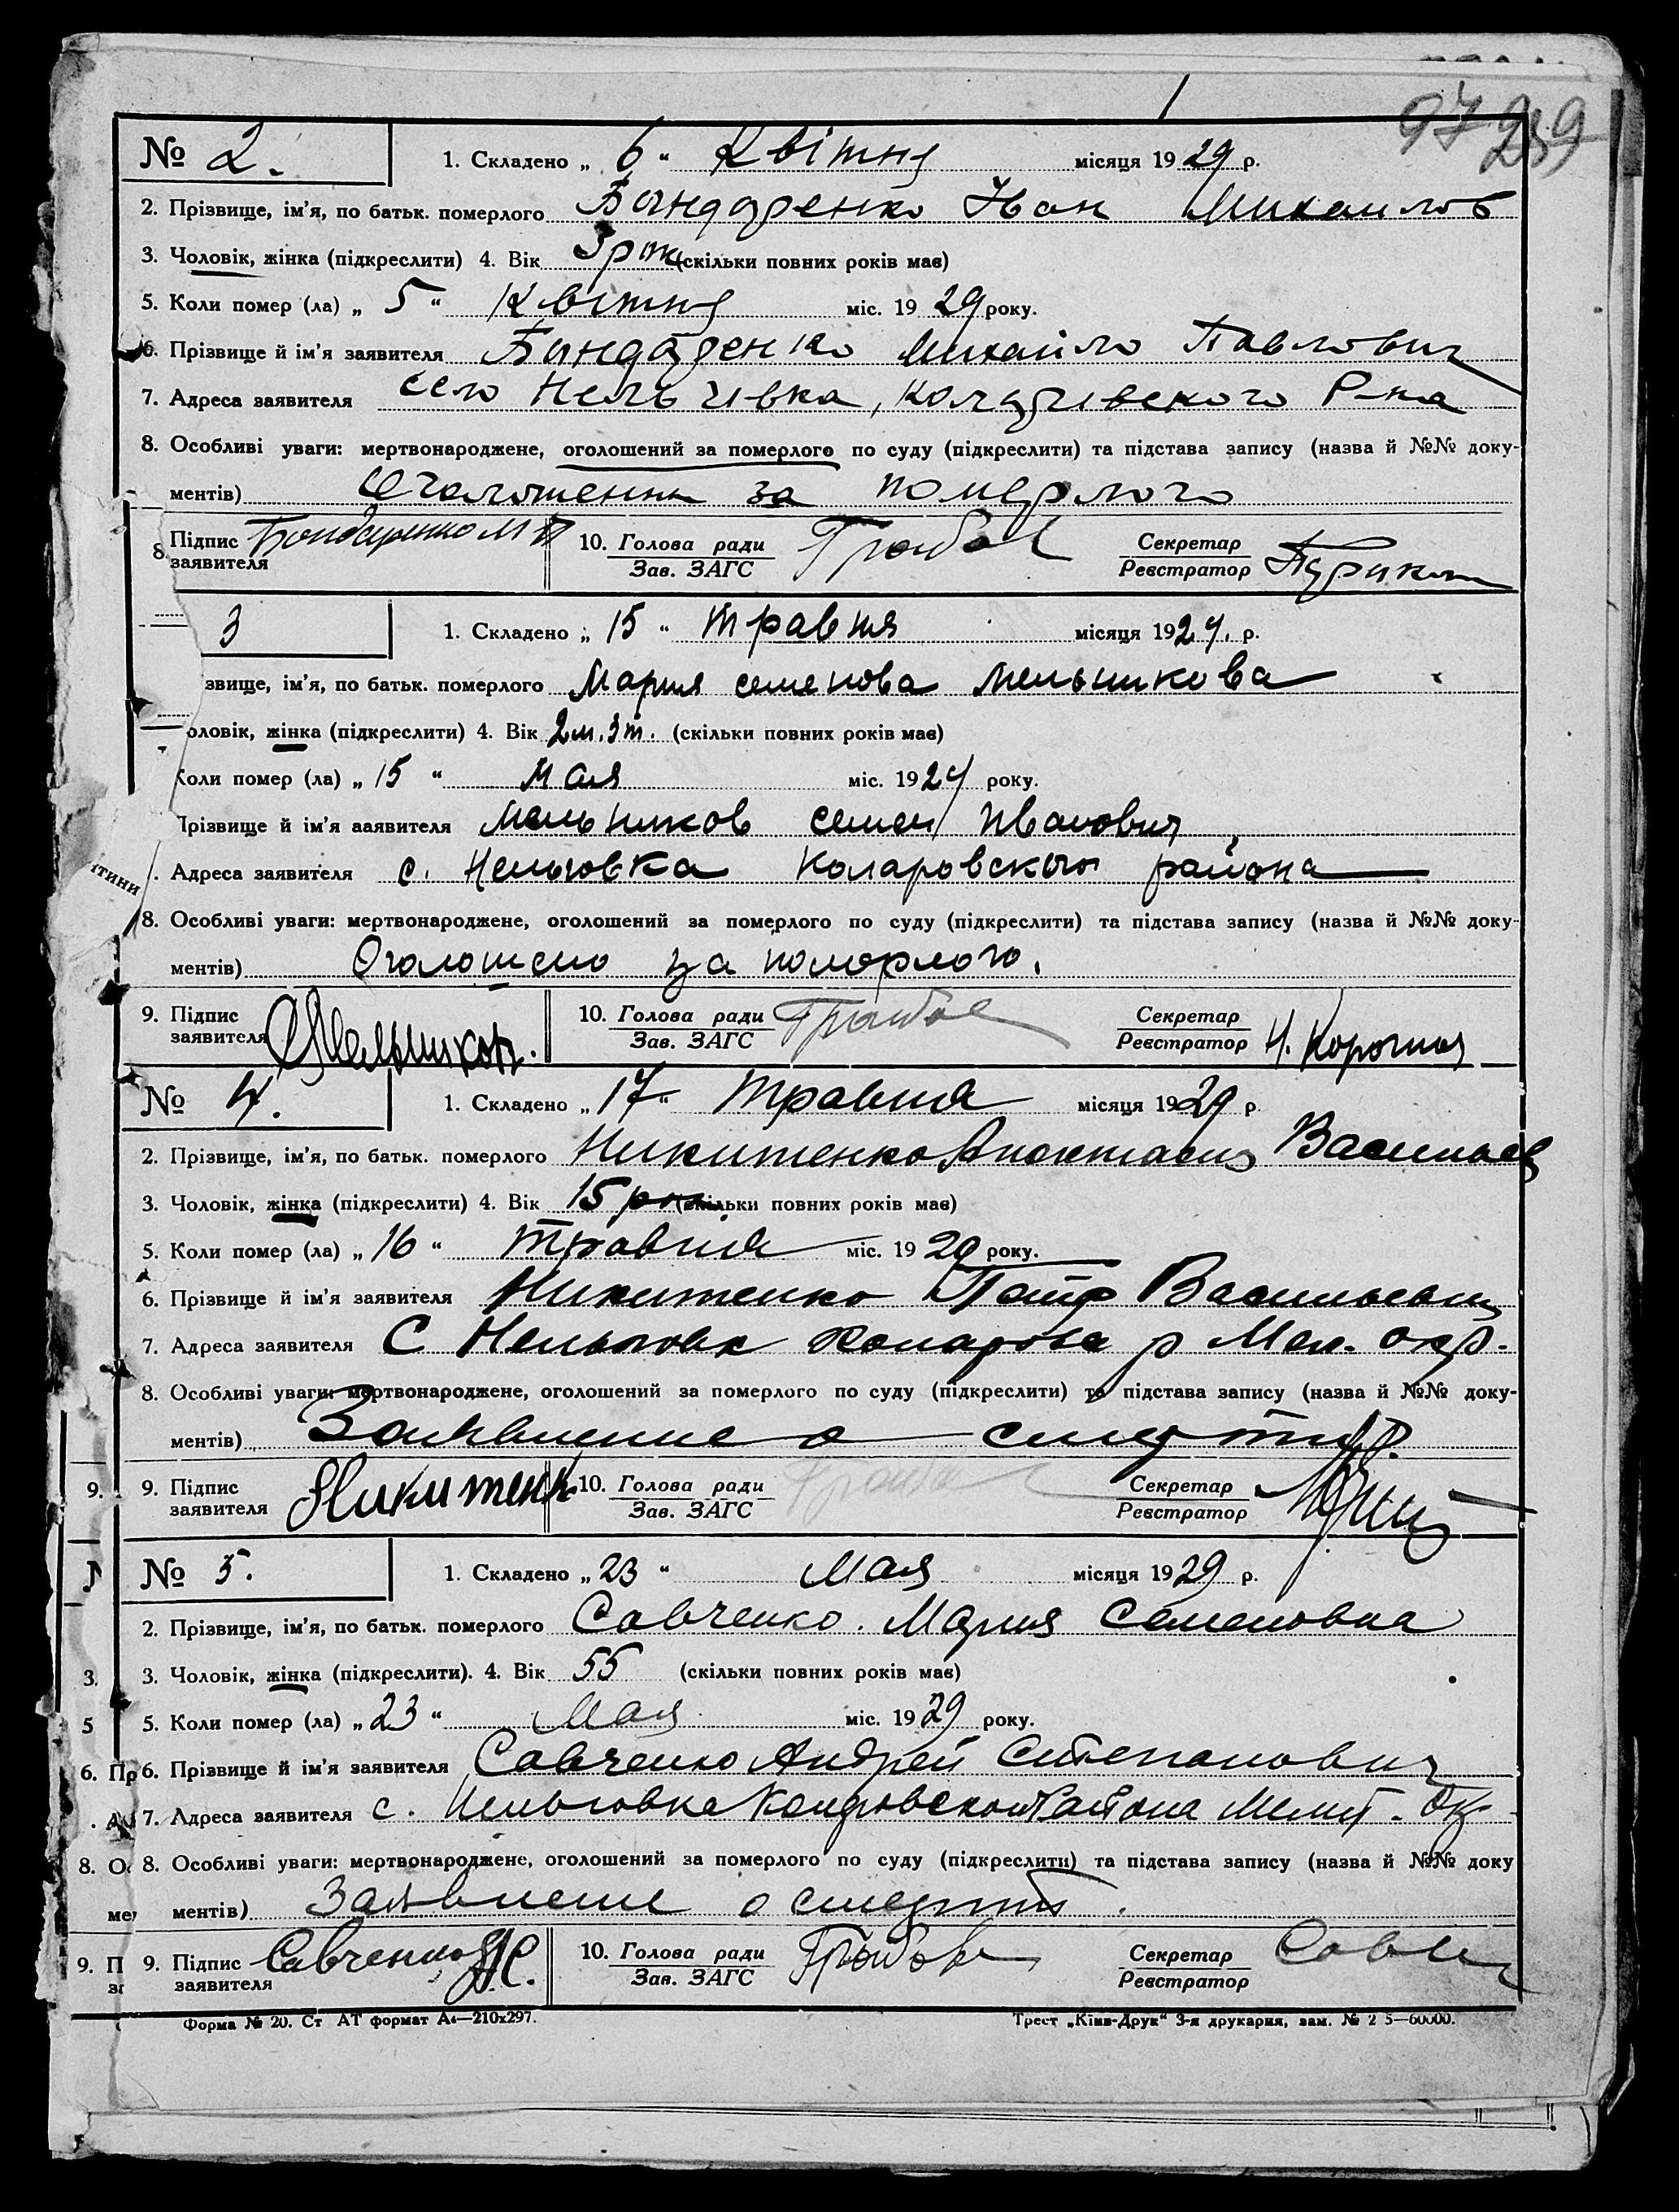 97 239
№ 2. 1. Складено „ 6 " Квітня місяця 1929 р.
2. Прізвище, ім'я, по батьк. померлого Бондаренко Иван Михаилов
3. Чоловік, жінка (підкреслити) 4. Вік 3 рок (скільки повних років має)
5. Коли помер (ла) „ 5 " Квітня міс. 1929 року.
6. Прізвище й ім'я заявителя Бондаренко Михайло Павлович
7. Адреса заявителя село Нельгівка, Коларівского Р-на
8. Особливі уваги: мертвонароджене, оголошений за померлого по суду (підкреслити) та підстава запису (назва й №№ доку-
ментів) за померлого
8. Підпис Бондаренко М П 10. Голова ради Секретар
заявителя Зав. ЗАГС Реєстратор
3 1. Складено „ 15 " травня місяця 1929. р.
звище, ім'я, по батьк. померлого Мария семенова мельникова
оловік, жінка (підкреслити) 4. Вік 2 м. 3 т. (скільки повних років має)
Коли помер (ла) „ 15 " мая міс. 1929 року.
Прізвище й ім'я заявителя мельников семен Иванович
тини
. Адреса заявителя с. Нельговка Коларовского района
8. Особливі уваги: мертвонароджене, оголошений за померлого по суду (підкреслити) та підстава запису (назва й №№ доку-
ментів) Оголошено за померлого.
9. Підпис СМельников. 10. Голова ради Секретар
заявителя Зав. ЗАГС Реєстратор
№ 4. 1. Складено „ 17 " травня місяця 1929 р.
2. Прізвище, ім'я, по батьк. померлого Никитенко Васильев
3. Чоловік, жінка (підкреслити) 4. Вік 15 рок (скільки повних років має)
5. Коли помер (ла) „ 16 " травня міс. 1929 року.
6. Прізвище й ім'я заявителя Никитенко Петр Васильевич
7. Адреса заявителя С Нельговка р Мел. окр.
8. Особливі уваги: мертвонароджене, оголошений за померлого по суду (підкреслити) та підстава запису (назва й №№ доку-
ментів) Заявление о смерти.
9. 9. Підпис Никитенк 10. Голова ради Секретар
заявителя Зав. ЗАГС Реєстратор
№ 5. 1. Складено „ 23 " Мая місяця 1929 р.
2. Прізвище, ім'я, по батьк. померлого Савченко. Мария Семеновна
3. 3. Чоловік, жінка (підкреслити). 4. Вік 55 (скільки повних років має)
5 5. Коли помер (ла) „ 23 " Мая міс. 1929 року.
6. Пр 6. Прізвище й ім'я заявителя Савченко Андрей Степанович
7. Адреса заявителя с. Нельговка Района Мелит. Ок
8. О 8. Особливі уваги: мертвонароджене, оголошений за померлого по суду (підкреслити) та підстава запису (назва й №№ доку
ментів) Заявление о смерти.
9. П 9. Підпис Савченко АС. 10. Голова ради Секретар
заявителя Зав. ЗАГС Реєстратор
Форма № 20. Ст АТ формат А4—210х297. Трест „Київ-Друк" 3-я друкарня, зам. № 2 5—60000.